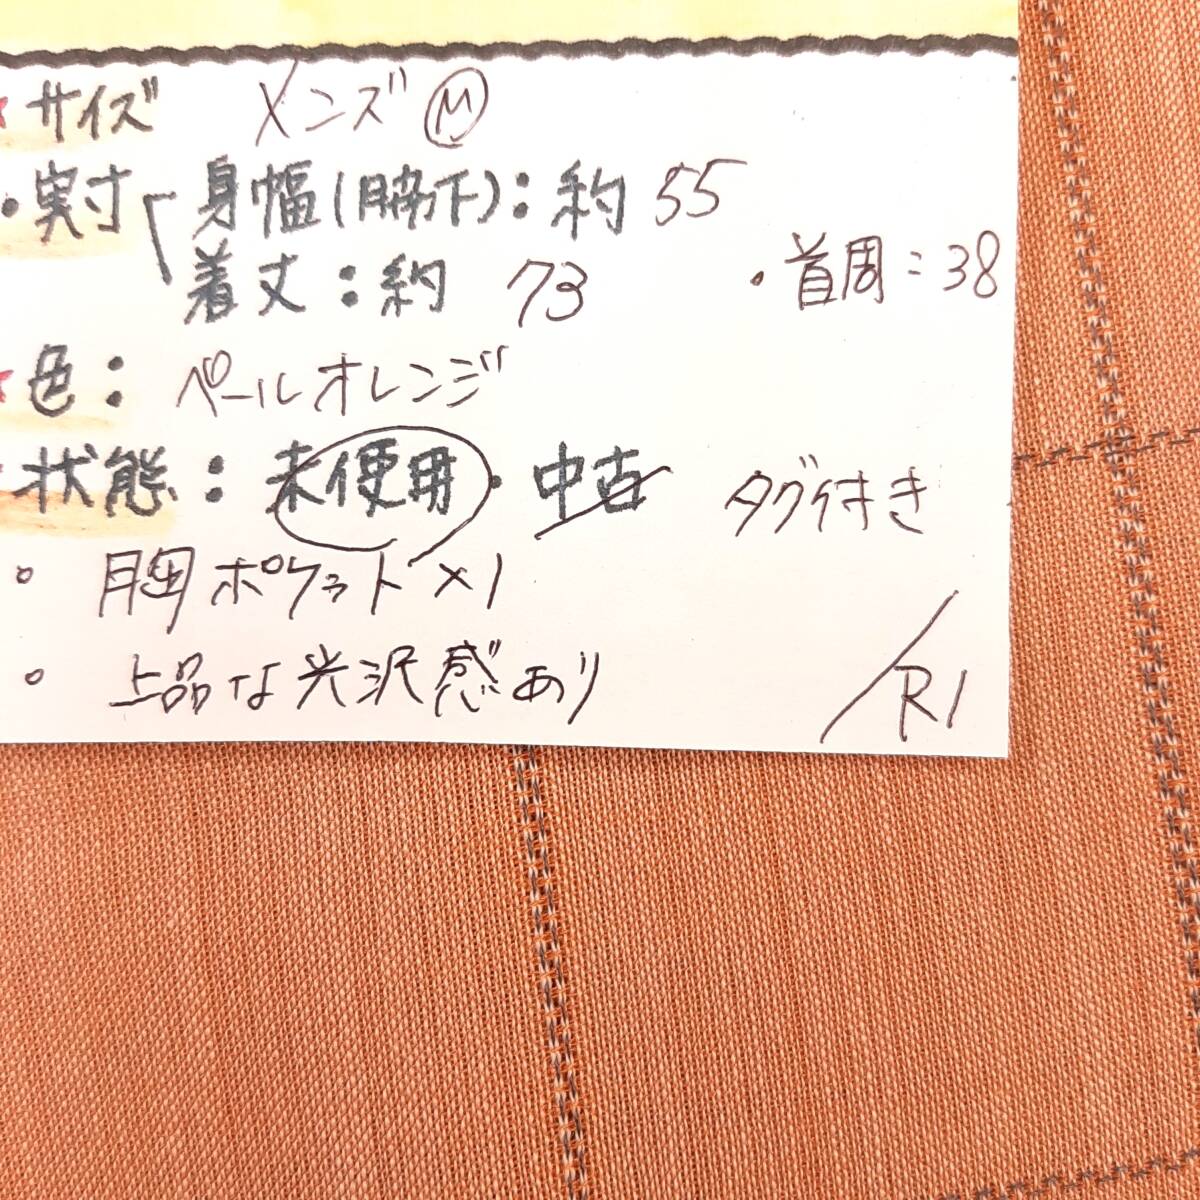 ★サイズ メンズ Ⓜ
・実寸 身幅(脇下):約 55
着丈:約 73 ・首周:38
★色: ペールオレンジ
状態:未使用・中古 タグ付き
・胸ポケット×1
・上品な光沢感あり
/R1